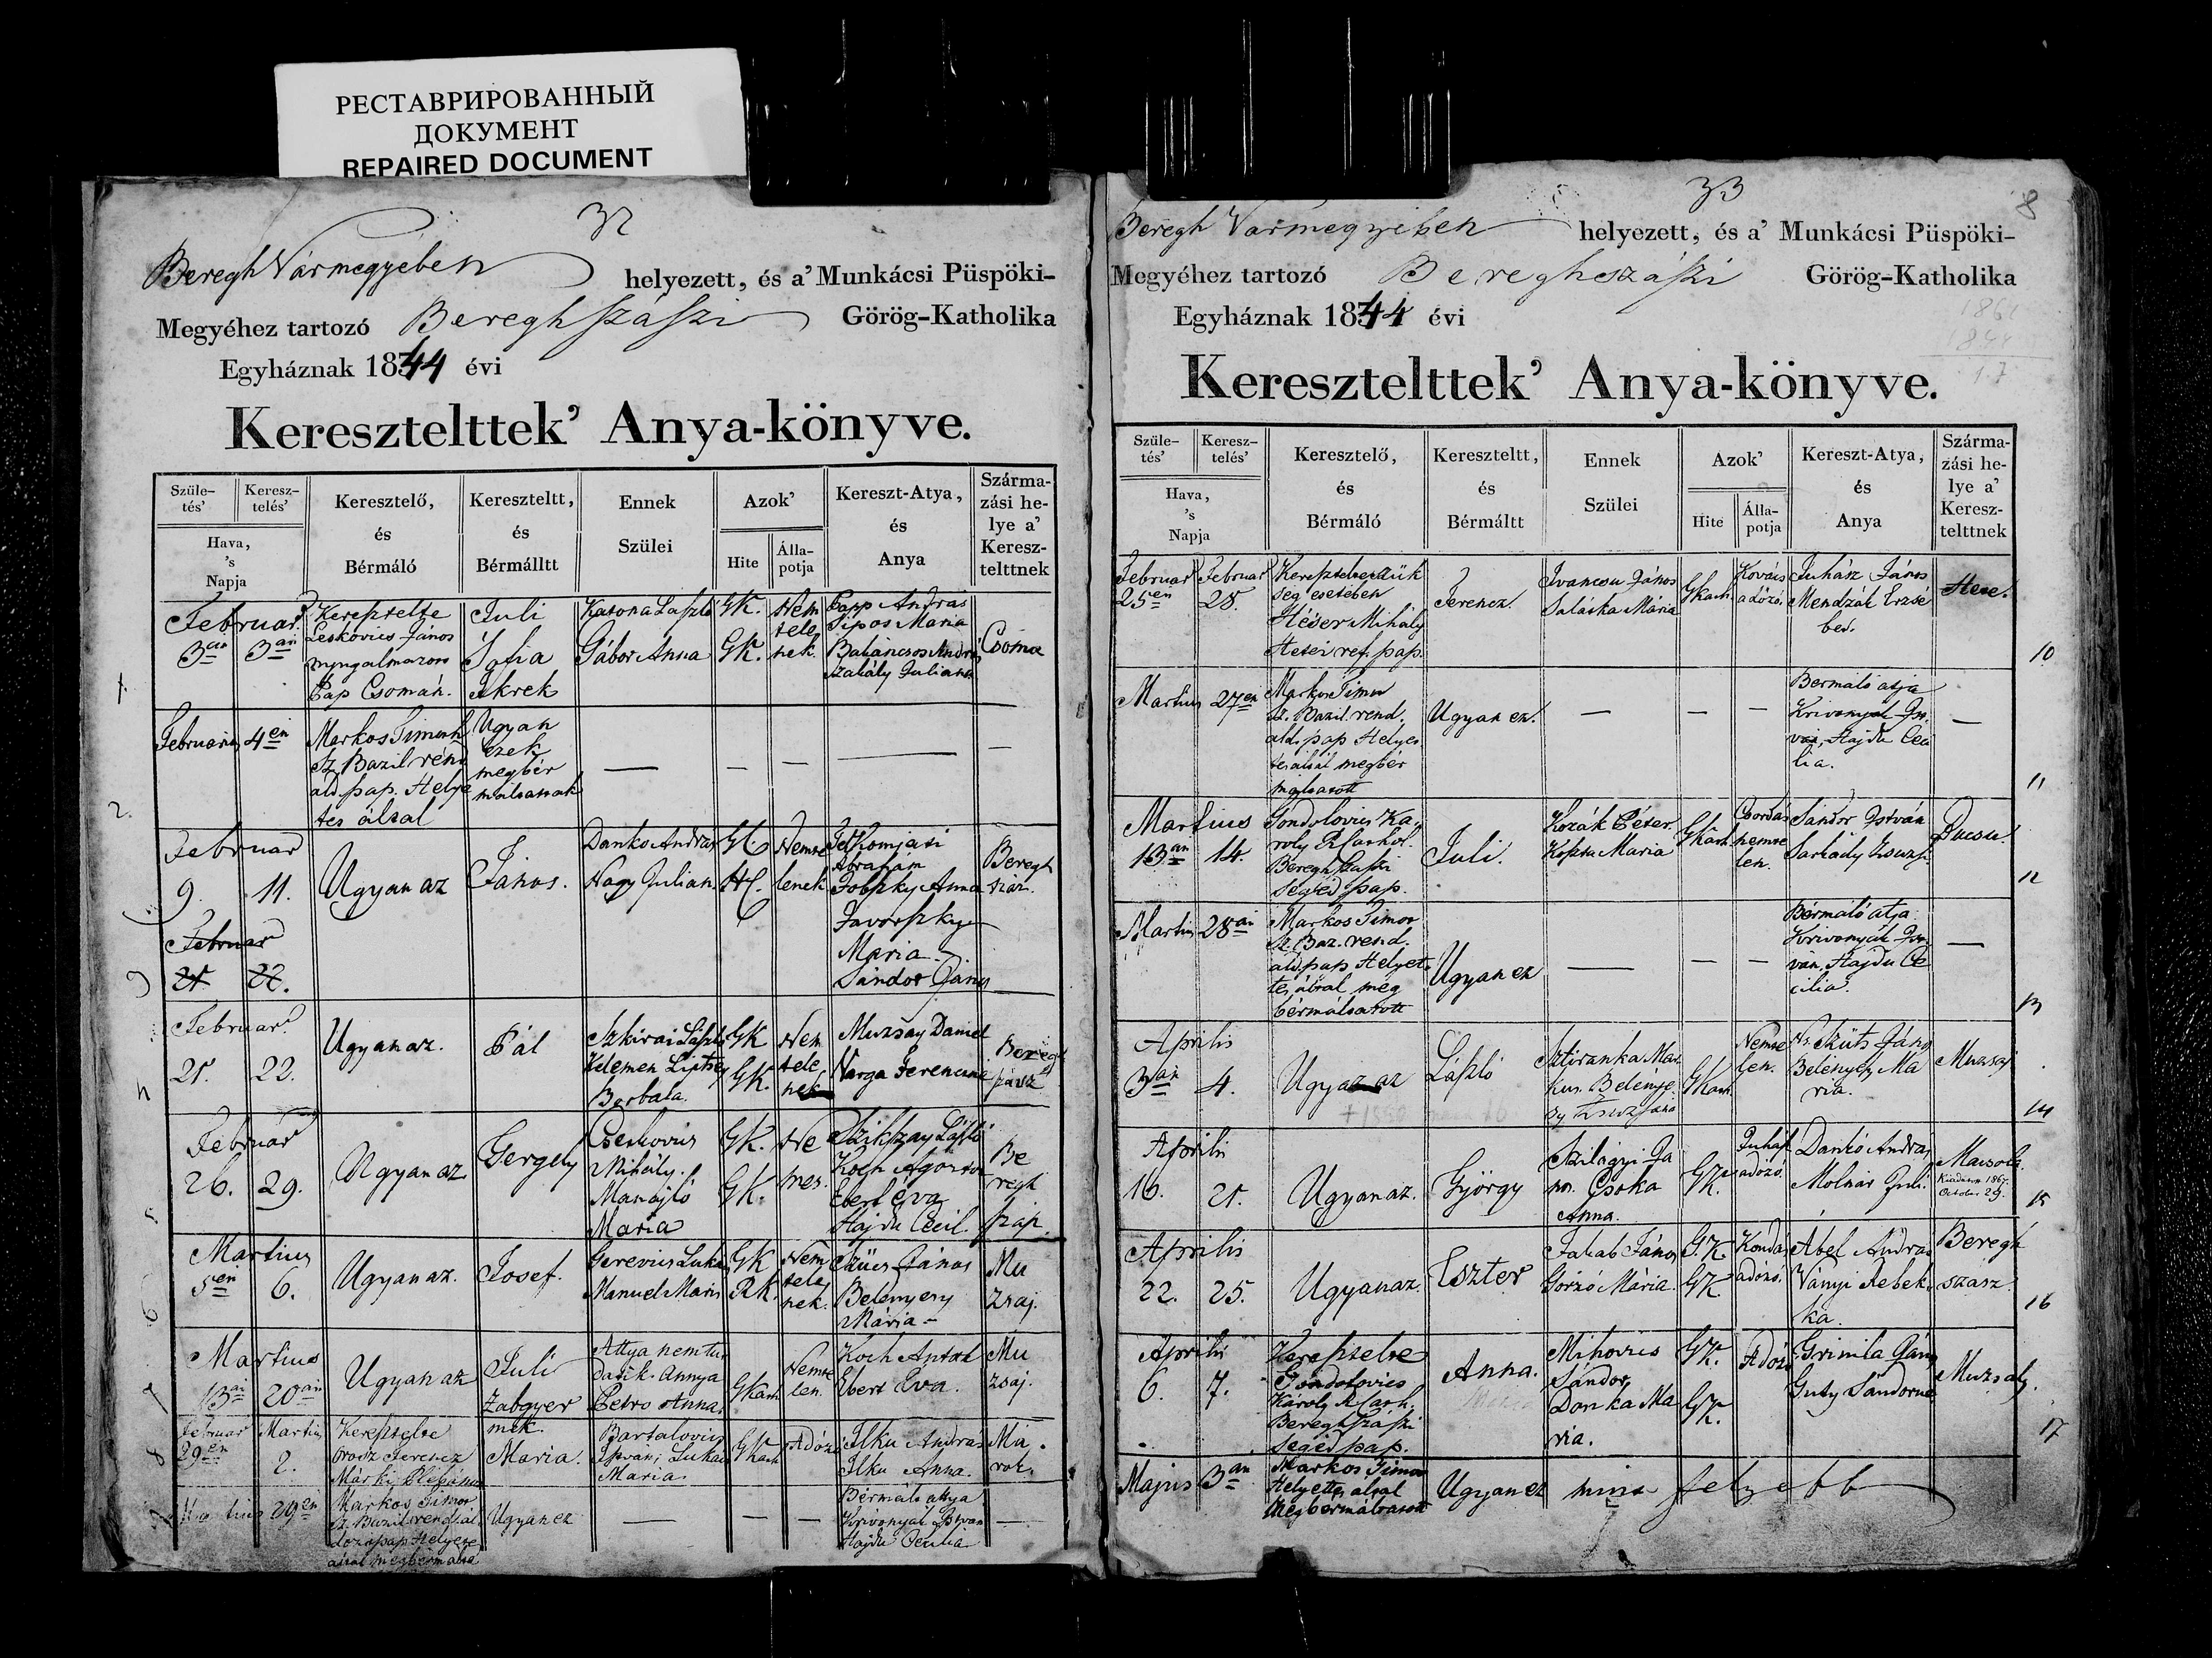 РЕСТАВРИРОВАННЫЙ
ДОКУМЕНТ
REPAIRED DOCUMENT
32
Beregh Vármegyében helyezett, és a' Munkácsi Püspöki-
Megyéhez tartozó Bereghszászi Görög-Katholika
Egyháznak 1844 évi
Keresztelttek' Anya-könyve.
Születés' Keresztelés' Hava, 's Napja
Keresztelő, és Bérmáló
Kereszteltt, és Bérmálltt
Ennek Szülei
Azok' Hite Állapotja
Kereszt-Atya, és Anya
Származási helye a' Keresztelttnek
1.
Februar 3an 3an
Keresztelte
Leskovics János
Pap Csomán.
Juli
Sofia
Ikrek
Katona László
Gábor Anna
GK.
GK.
Nem
tele
nek.
Papp András
Sipos Maria
Baláncsos András
Juliana
Csoma
2.
Februarius 4en
Markos Timoth
Sz. Bazil rend
áld. pap. Helye
tes által
Ugyan
ezek
megbér
máltattak
— — — — —
Februar
9. 11.
Ugyan az
János.
Danko András
Nagy Julian.
Nemte
lenek
Abrahám
Anna
Maria
Sándor János
Beregh
szász.
Februar
21. 22.
Februar.
21. 22.
Ugyan az.
Pál
Klemen
Borbala.
GK
GK.
Nem
tele
nek
Muzsay Daniel
Varga Ferencne
Beregh
szász
Februar
26. 29.
Ugyan az
Gergely
Mihály.
Manajló
Maria
GK.
GK.
Ne
mes.
László
Koch Agoston
Ebert Éva
Hajdu Cecil.
Be
regh
szász.
6
Martius
5en 6.
Ugyan az.
Josef.
Gerevics Luka
Manuel Maria
GK
RK.
Nem
tele
nek.
Szücs János
Belenyesy
Mária
Mu
zsaj.
7
Martius
13ai 20ain
Ugyan az
Juli
Zabgyer
mek.
Attya nem tu
datik. Annya
Petro Anna.
GKath
Nemte
len.
Koch Antal
Ebert Eva.
Mu
zsaj.
8
Februar 29en Martius 2.
Keresztelte
Orosz Ferencz
Maria.
Bartalovics
István; Lukács
Maria
GKath
Adózó
Ilku András
Ilku Anna.
Martius 29en
Markos Timot
Sz. Bazil rend ál
dozopap Helyetes
által megbermalta
Ugyan ez
— — —
Bérmáló attya
Krivonyak István
Hajdu Cecilia
—
33
8
Beregh Vármegyében helyezett, és a' Munkácsi Püspöki-
Megyéhez tartozó Bereghszászi Görög-Katholika
Egyháznak 1844 évi
1861
1844
17
Keresztelttek' Anya-könyve.
Születés' Keresztelés' Hava, 's Napja
Keresztelő, és Bérmáló
Kereszteltt, és Bérmáltt
Ennek Szülei
Azok' Hite Állapotja
Kereszt-Atya, és Anya
Származási helye a' Keresztelttnek
Februar 25en Februar 28.
ség esetében
Héder Mihály
Hetei ref. pap.
Ferencz.
Ivancsu János
Saláska Mária
GKath.
Kovács
adózó.
Juhász János
Mendzák Erzsé
bet.
Hete.
10
Martius 27en
Markos Timot
Sz. Bazil. rend.
ald. pap Helyet
tes által megbér
máltatott
Ugyan ez.
— — —
Bermáló atja
Krivonyak Ist
ván, Hajdu Ceci
lia.
—
11
Martius
13an 14.
Gondolovics Ka
roly R. Kathol.
Bereghszászi
Segéd pap.
Juli.
Kozák Péter.
Maria
GKath
Csordás
nemte
len.
Sándor István
Sarkady Zsuzs.
Bucsu.
12
Martius 28ain
Markos Timot
Sz. Baz. rend.
áld. pap Helyet
tes által meg
bérmáltatott
Ugyan ez
— — —
Bérmáló atja
Krivonyák Ist
ván, Hajdu Ce
cilia.
—
13
Aprilis
3an 4.
Ugyan az
László
Sztiranka Mar
kus. Belénye
sy Zsuzsána
GKath
Nemte
len.
János
Belényesy Ma
ria.
Muzsaj
14
Aprilis
16. 21.
Ugyan az.
György
Szilágyi Ja
nos. Csoka
Anna.
GK.
Juhász
adózó.
Dankó András
Molnár Juli.
Macsola
Kiadatva 1867.
October 29.
15
Aprilis
22. 25.
Ugyan az.
Eszter
János
Gorzó Mária.
G.K.
GK
Kondás
adózó.
Ábel András
Ványi Rebek
ka.
Beregh
szász
16
Aprilis
6. 7.
Keresztelte
Gondolovics
Károly R. Cath.
Beregh szászi
segéd pap.
Anna.
Mihovics
Sándor,
Danka Ma
ria.
GK.
GK.
Adózó
Grinila János
Guty Sándorné
Muzsaly.
17
Majus 3an
Markos Timot
Helyettes által
Megbermáltatott
Ugyan ez mint feljebb